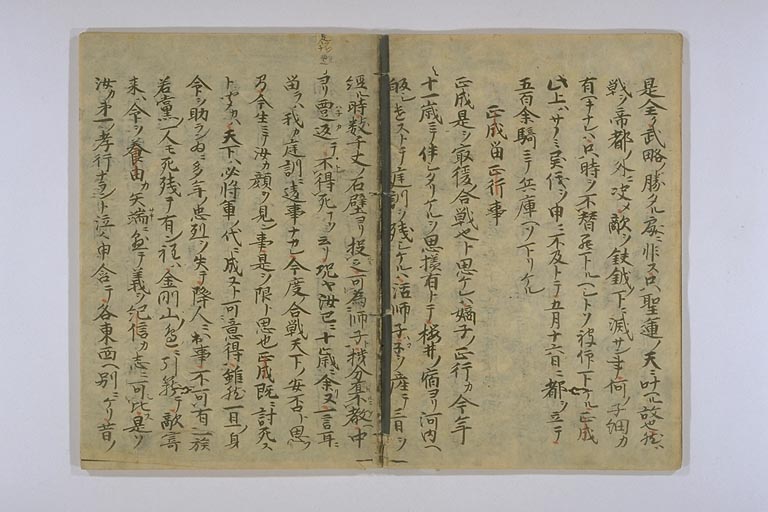 是全ク武略ノ勝タル処ニ非ス只聖運ノ天ニ叶ヘル故也然ハ
戦ヲ帝都ノ外ニ决メ敵ヲ鈇鉞ノ下ニ滅サン事何ノ子細カ
有ヘキナレハ只時ヲ不替罷下ルヘシトソ被仰下ケル正成
此上ハサノミ異儀ヲ申ニ不及トテ五月十六日ニ都ヲ立テ
五百余騎ニテ兵庫ヘソ下リケル
正成留正行事
正成是ヲ最後ノ合戦也ト思ケレハ嫡子ノ正行カ今年
十一歳ニテ伴ヒタリケルヲ思様有トテ桜井ノ宿ヨリ河内ヘ
返シ遣ストテ庭訓ヲ残シケルハ活師子子ヲ産テ三日ヲ
経ル時数千丈ノ石壁ヨリ投之可為師子ノ機分ハ不教中
ヨリ飜返テ不得死ナリト云リ况ヤ汝已ニ十歳ニ余ヌ一言耳
留ラハ我カ庭訓ニ違事ナカレ今度ノ合戦天下ノ安否ト思フ
乃今生ニテ汝カ顔ヲ見ン事是ヲ限ト思也正成既ニ討死ス
ト聞ハ天下ハ必将軍ノ代ニ成ヌト可意得雖然一旦ノ身
命ヲ助ラン為ニ多年ノ忠烈ヲ失テ降人ニ出事不可有一族
若党ノ一人モ死残テ有ン程ハ金剛山ノ邊ニ引籠テ敵寄
来ハ命ヲ養由カ矢端ニ懸テ義ヲ紀信カ志ニ可比是ヲ
汝カ第一ノ孝行ナラント泣々申含テ各東西ヘ別ニケリ昔ノ